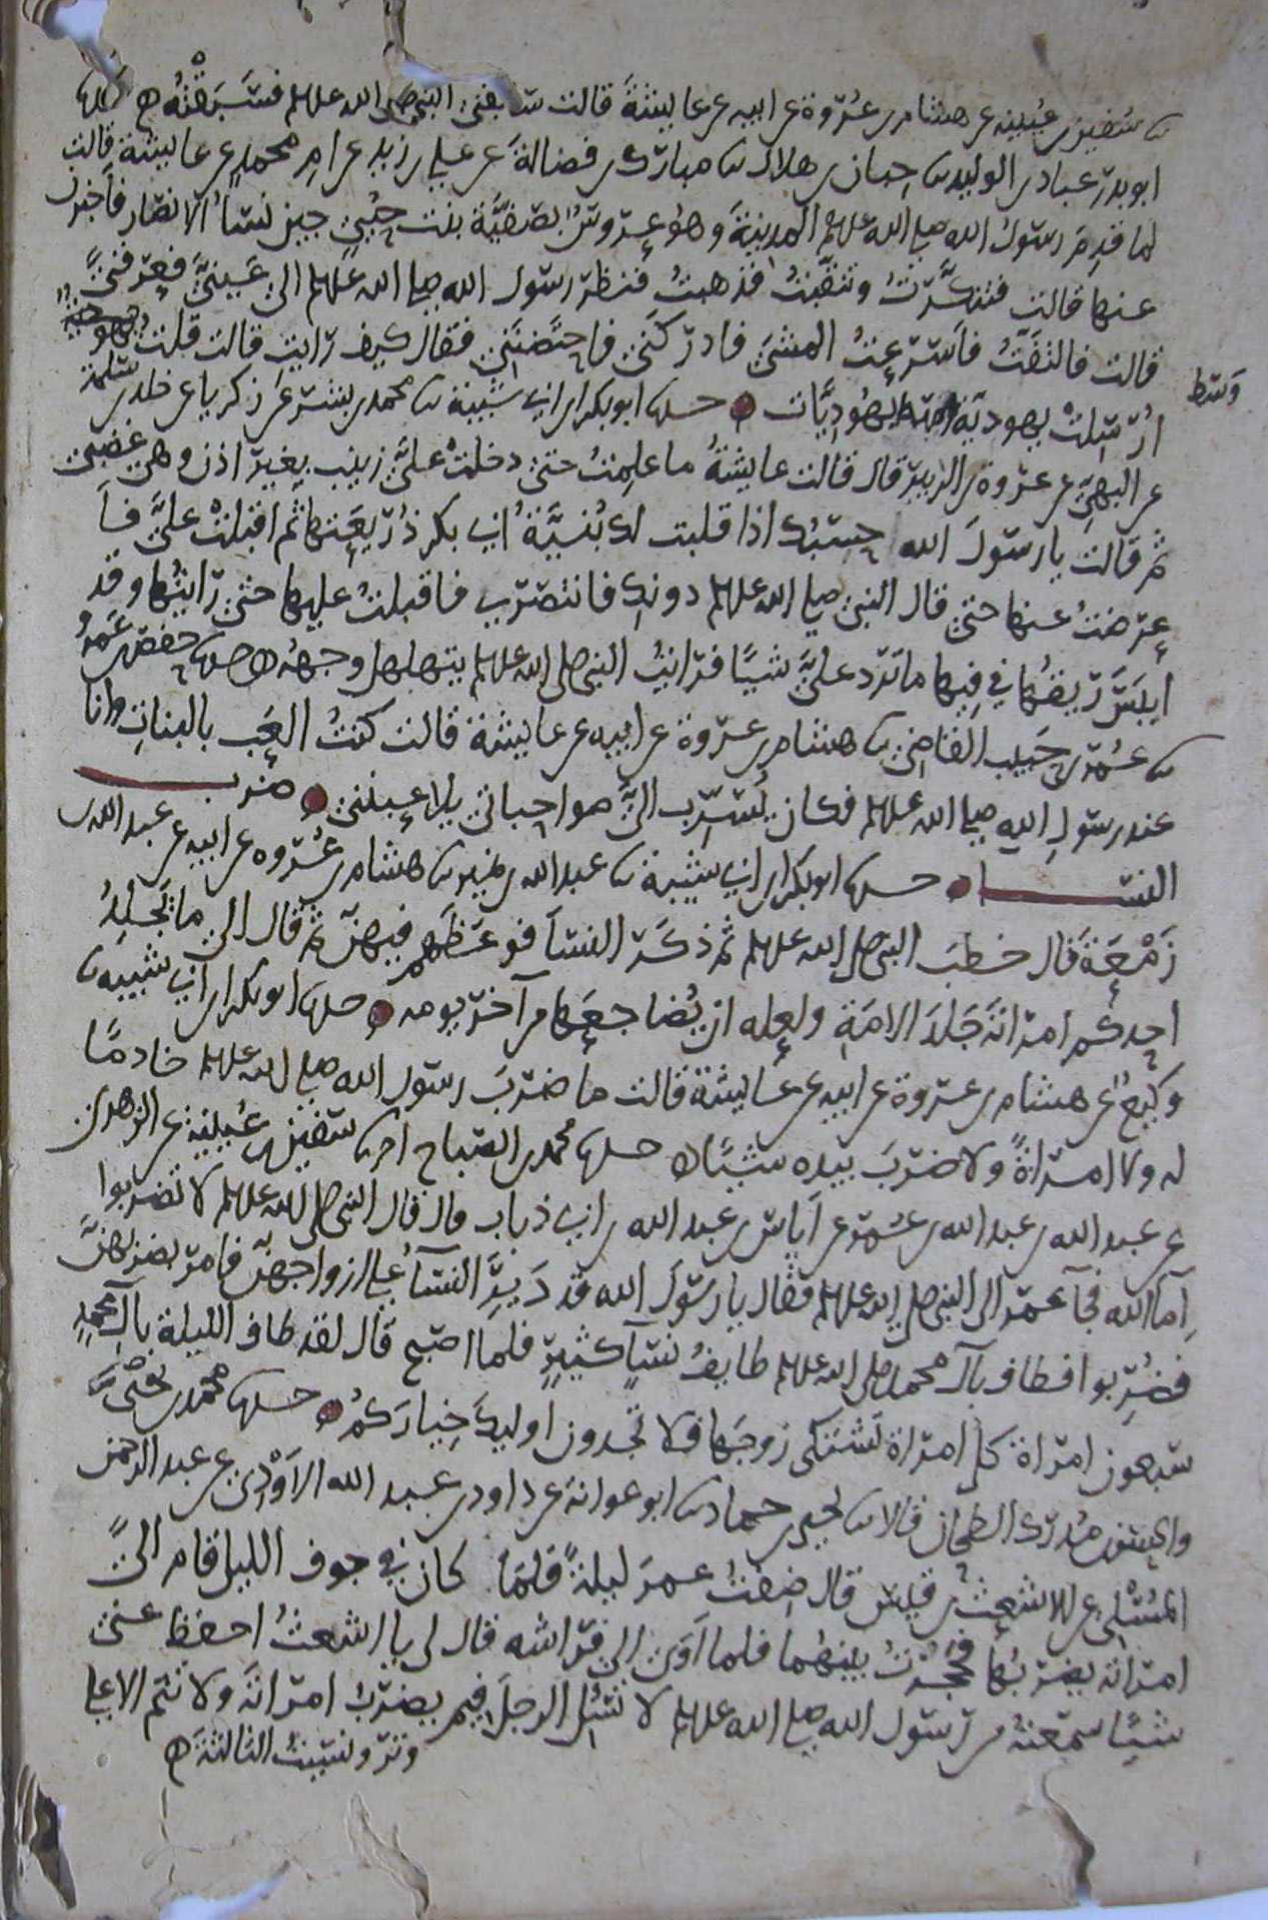 سفين بن عيينه عن هشام بن عروة عن ابيه عن عايشة قالت سابقني النبي صلى الله علىه وسلم فسبقته حدثنا
ابو بدر عباد بن الوليد ثنا حبان بن هلال ثنا مبارك بن فضالة عن علي بن زيد عن ام محمد عن عايشة قالت
لما قدم رسول الله صلى الله علىه وسلم المدينة وهو عروس بصفية بنت حيي جين نسا الانصار فاخبرن
عنها قالت فتنكرت وتنقبت فذهبت فنظر رسول الله صلى الله علىه وسلم الى عيني فعرفني
قالت فالتفت فاسرعت المشي فادركني فاحتضنني فقال كيف رايت قالت قلت
وسط
ارسل يهودية وسط يهوديات حدثنا ابو بكر بن ابي شيبة ثنا محمد بن بشر عن زكريا عن خلد بن سلمة
عن البهي عن عروة بن الزبير قال قالت عايشة ما علمت حتى دخلت علي زينب بغير اذن وهي غضبى
ثم قالت يا رسول الله حسبك اذا قلبت لك بنية ابي بكر ذريعتها ثم اقبلت علي فا
عرضت عنها حتى قال النبي صلى الله علىه وسلم دونك فانتصري فاقبلت عليها حتى رايتها وقد
ايبس ريقها في فيها ما ترد علي شيا فرايت النبي صلى الله علىه وسلم يتهلل وجهه حدثنا حفص بن عمر
ثنا عمر بن حبيب القاضي ثنا هشام بن عروة عن ابيه عن عايشة قالت كنت العب بالبنات وانا
عند رسول الله صلى الله علىه وسلم فكان يسرب الي صواحباتي يلاعبنني ضرب
النسا حدثنا ابو بكر بن ابي شيبة ثنا عبد الله بن نمير ثنا هشام بن عروه عن ابيه عن عبد الله بن
زمعة قال خطب النبي صلى الله علىه وسلم ثم ذكر النسا فوعظهم فيهن ثم قال الى ما يجلد
احدكم امراته جلد الامة ولعله ان يضاجعها من آخر يومه حدثنا ابو بكر بن ابي شيبه ثنا
وكيع عن هشام بن عروة عن ابيه عن عايشة قالت ما ضرب رسول الله صلى الله علىه وسلم خادما
له ولا امراة ولا ضرب بيده شيا حدثنا محمد بن الصباح انا سفين بن عيينة عن الزهري
عن عبد الله بن عبد الله بن عمر عن اياس بن عبد الله بن ابي ذباب قال قال النبي صلى الله علىه وسلم لا تضربوا
اما الله فجآ عمر الى النبي صلى الله علىه وسلم فقال يا رسول الله قد ذير النسآ على ازواجهن فامر بضربهن
فضربوا فطاف بآل محمد صلى الله علىه وسلم طايف نسآ كثير فلما اصبح قال لقد طاف الليلة بآل محمد
سبعون امراة كل امراة تشتكي زوجها فلا تجدون اوليك خياركم حدثنا محمد بن يحيى
والحسن بن مدرك الطحان قالا ثنا يحيى بن حماد ثنا ابو عوانة عن داود بن عبد الله الاودي عن عبد الرحمن
المسلي عن الاشعث بن قيس قال ضفت عمر ليلة فلما كان في جوف الليل قام الى
امراته يضربها فحجزت بينهما فلما اوى الى فراشه قال لي يا اشعث احفظ عني
شيا سمعته من رسول الله صلى الله علىه وسلم لا تسل الرجل فيم يضرب امراته ولا تنم الا على
وتر ونسيت الثالثة